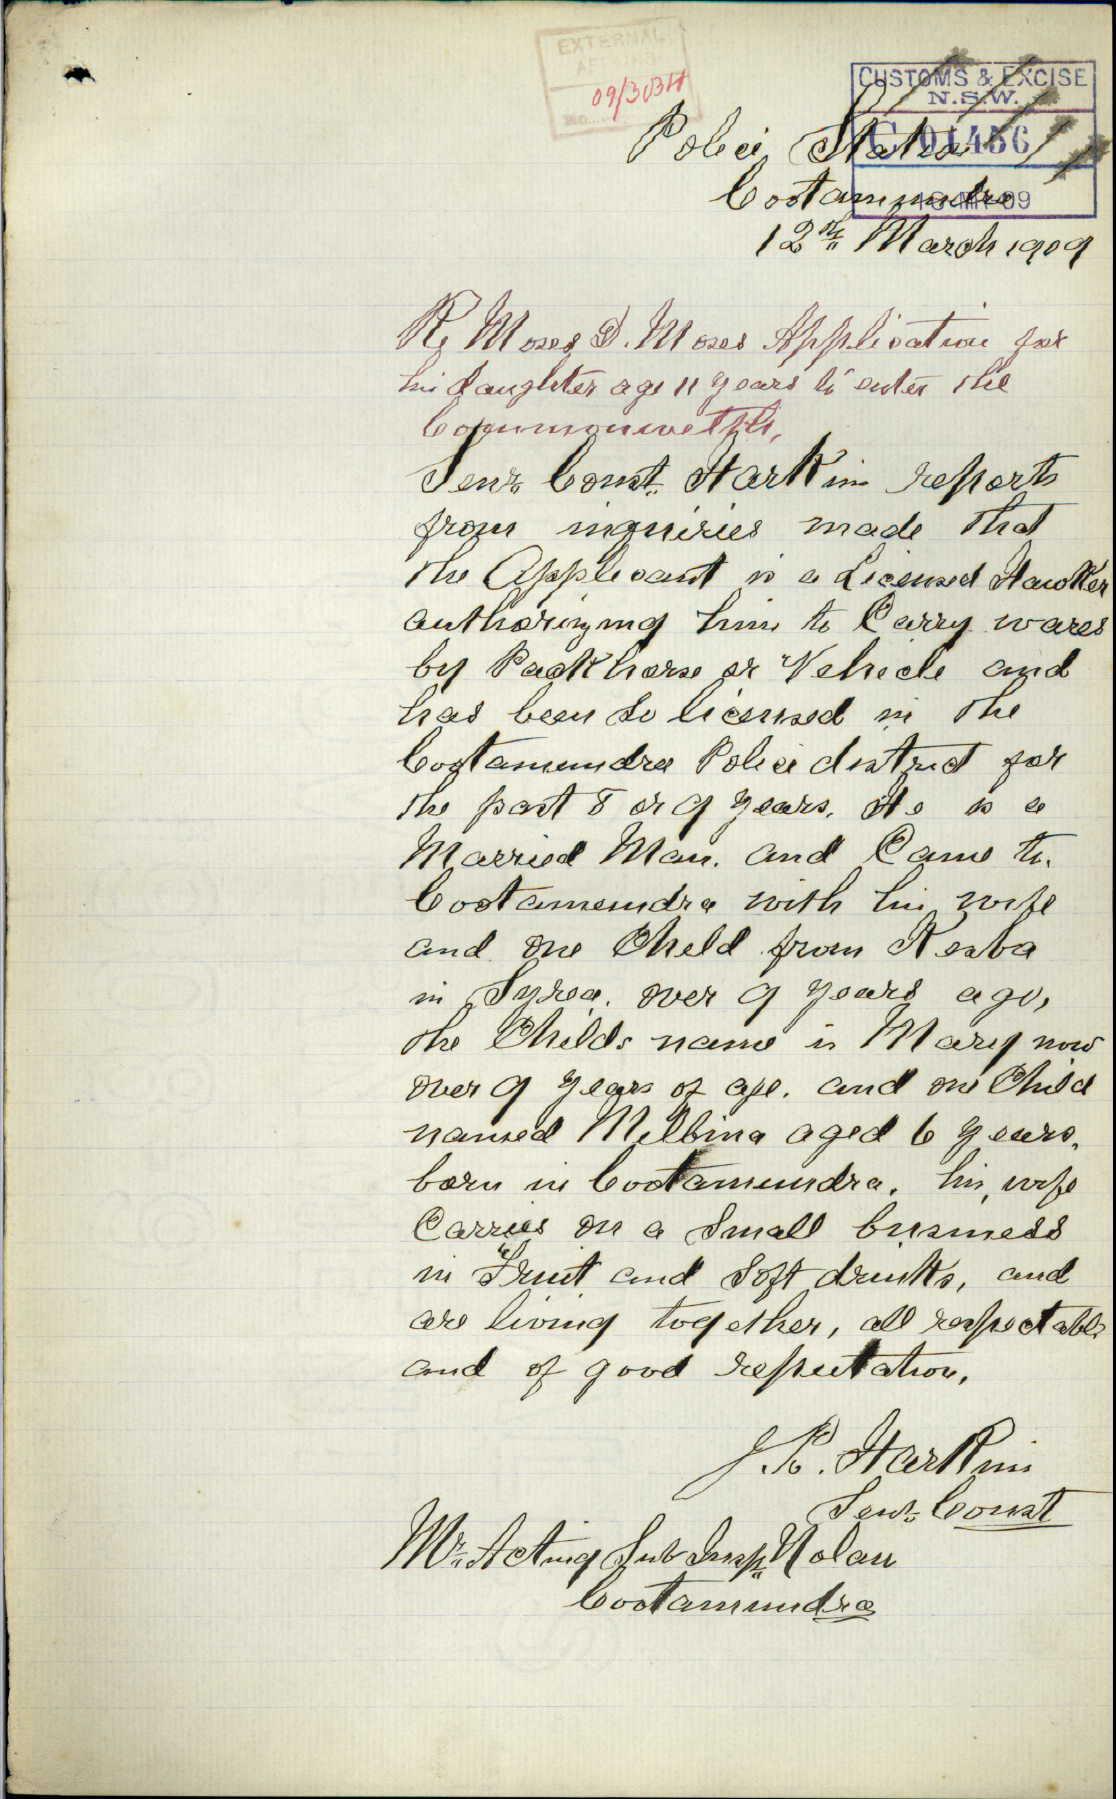 EXTERNAL
AFFAIRS
09/3034
No.
CUSTOMS & EXCISE
N.S.W.
C 01456
MR 09
Police Station
Cootamundra
12th March 1909
Re Moses D. Moses Application for
his daughter age 11 years to enter the
Commonwelth,
Senr. Const. Harkin reports
from inquiries made that
the Applicant is a Licensed Hawker
authorizing him to Carry wares
by Packhorse or Vehicle and
has been so licensed in the
Cootamundra Police district for
the past 8 or 9 years. He is a
Married Man. and Came to
Cootamundra with his wife
and one Child from Kesba
in Syria. over 9 years ago,
the Childs name is Mary now
over 9 years of age. and one Child
named Millbina aged 6 years,
born in Cootamundra. his wife
Carries on a small business
in Fruit and Soft drinks, and
are living together, all respectable
and of good reputation,
J. R. Harkin
Senr. Const
Mr. Acting Sub Insp. Nolan
Cootamundra